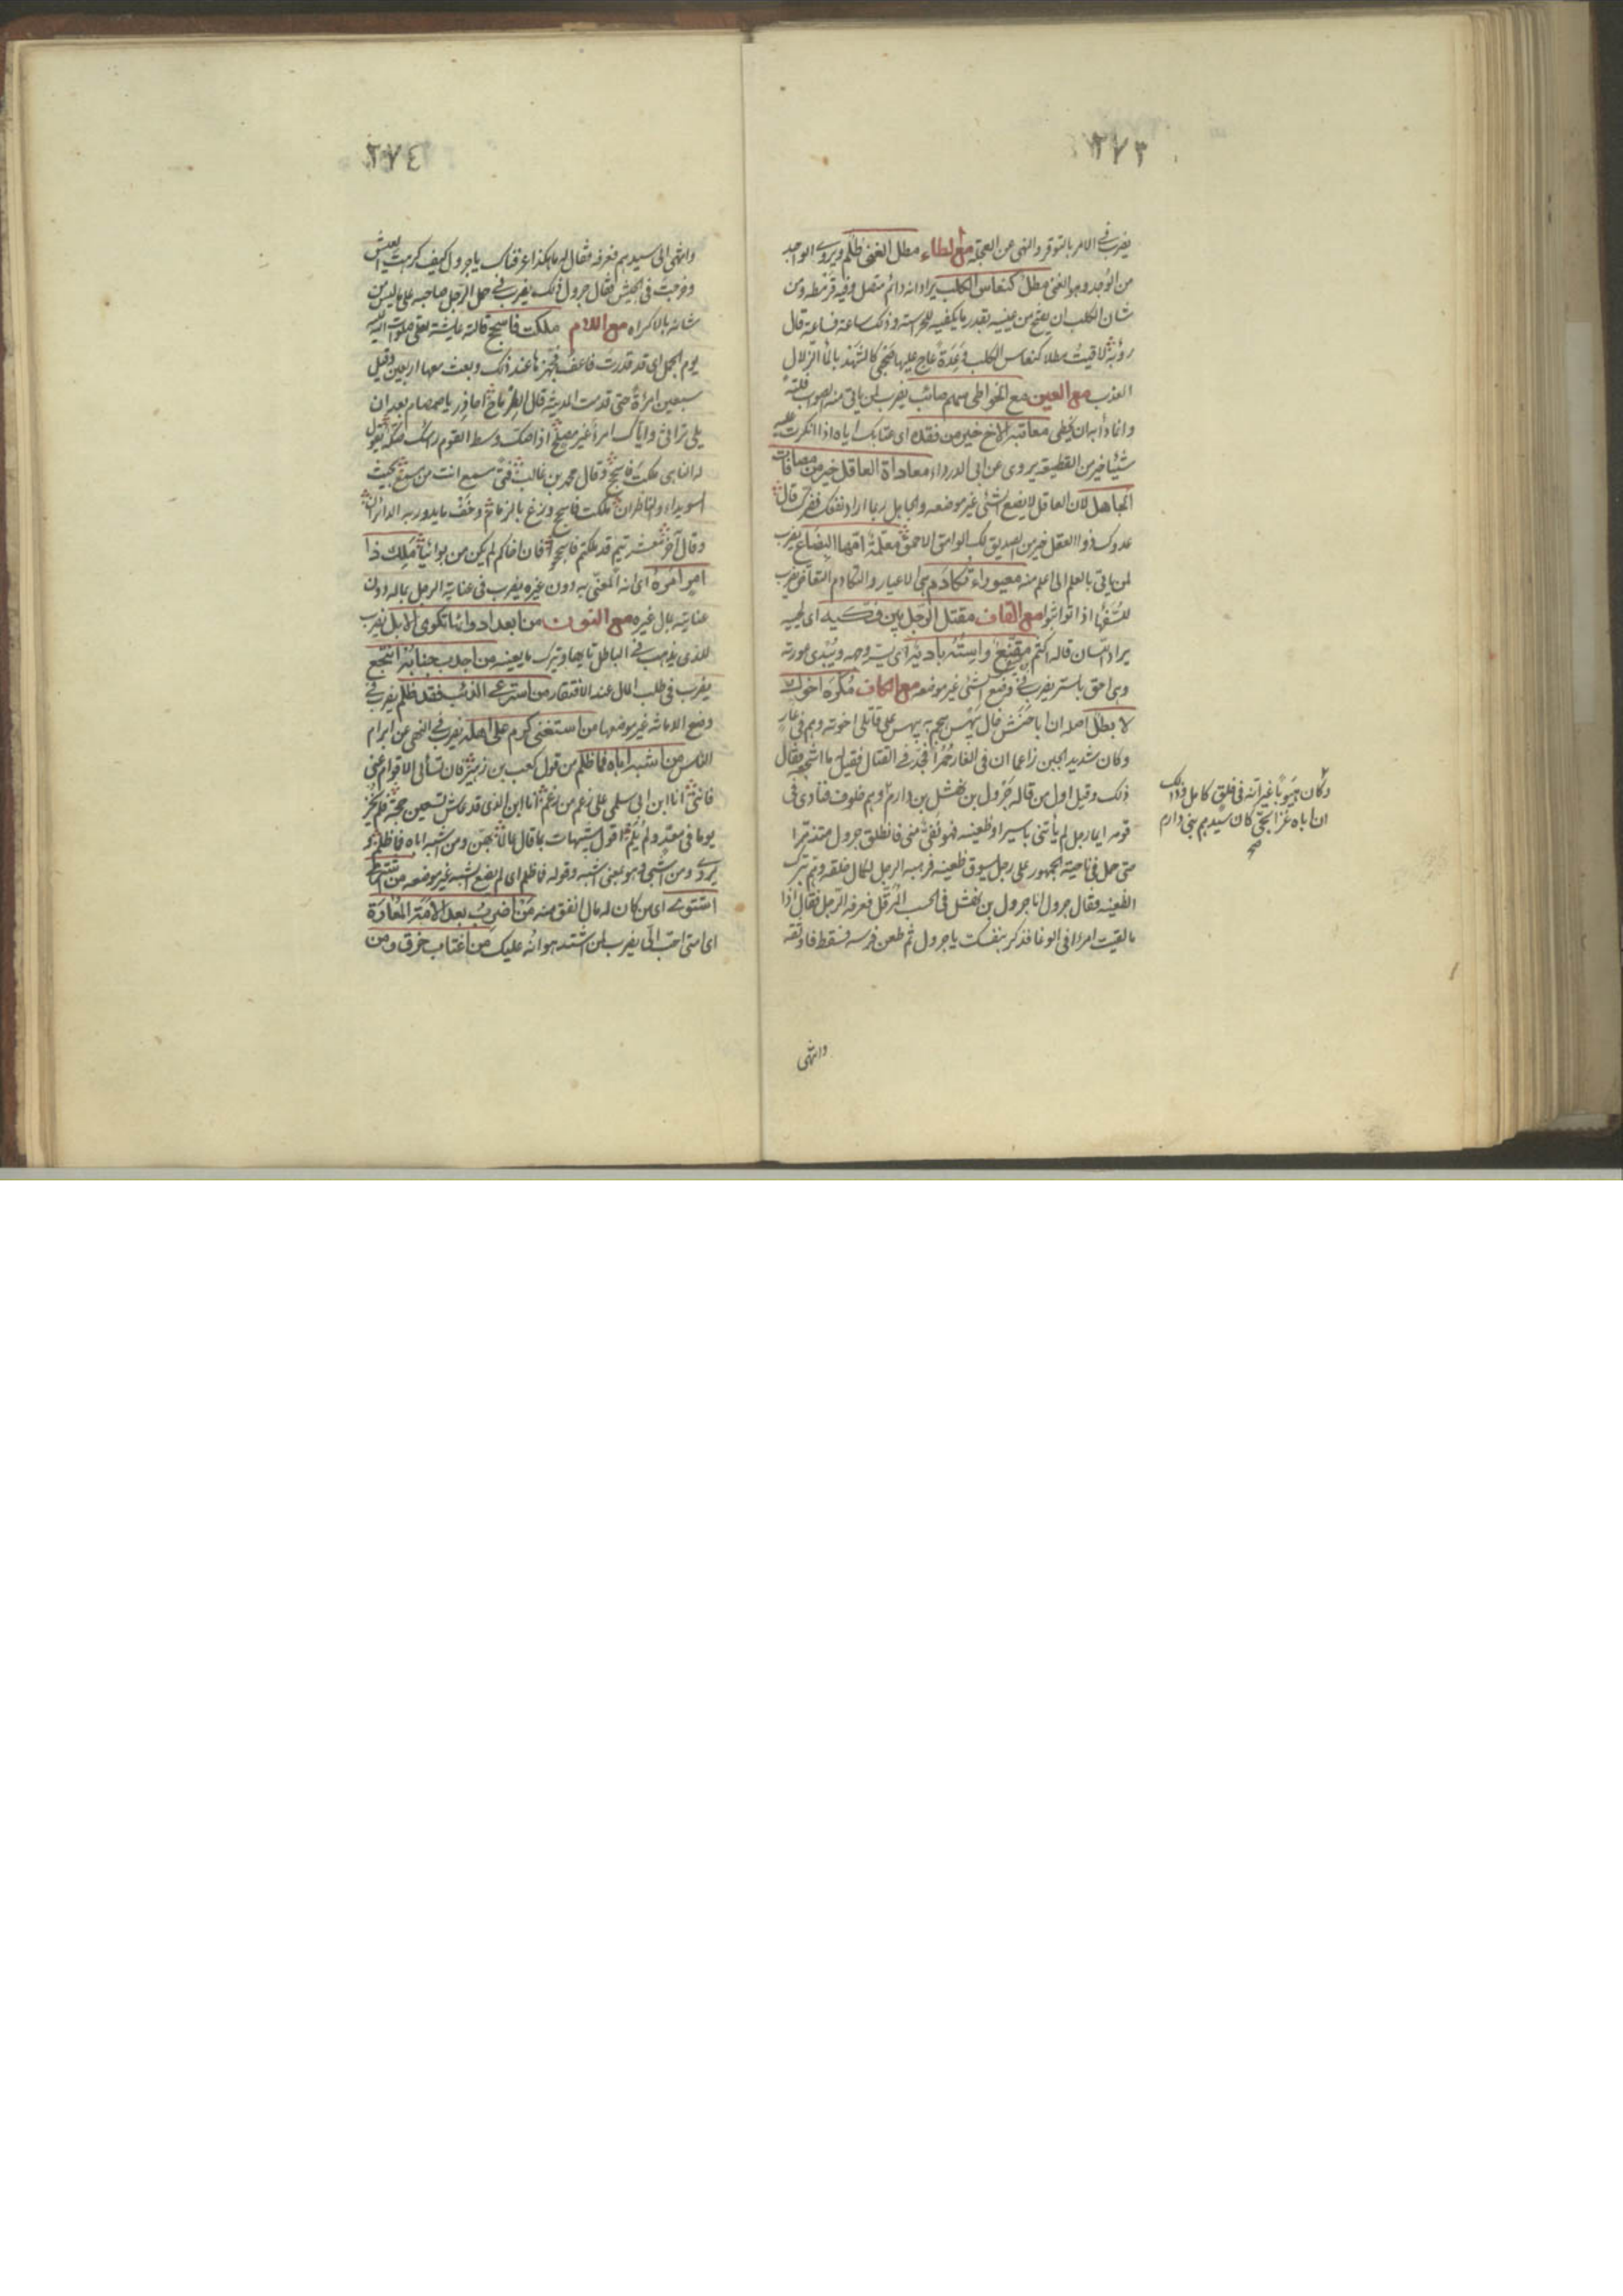 ٢٧٣
يضرب في الامر بالتوقر والنهي عن العجلة مع الطاء مطل الغني ظلم ويروى الواجد
من الوجد وهو الغني مطل كنعاس الكلب يراد انه دائم متصل وفيه قرمطه ومن
شان الكلب ان يفتح من عينيه بقدر ما يكفيه للحراسة وذلك ساعة فساعة قال
رؤبة لاقيت مطلا كنعاس الكلب وعدة عاج عليها صحبي كالشهد بالماء الزلال
العذب مع العين مع الخواطي سهم صائب يضرب لمن ياتي منه الصواب فلتة
وانما دأبه ان يخطي معاتبة الاخ خير من فقده اي عتابك اياه اذا انكرت عليه
شيئا خير من القطيعة يروى عن ابي الدرداء معاداة العاقل خير من مصافات
الجاهل لان العاقل لا يضع الشئ غير موضعه والجاهل ربما اراد نفعك فضرك قال
عدوك ذو العقل خير من الصديق لك الوامق الاحمق معلمة امها البضاع يضرب
لمن ياتي بالعلم الى اعلم منه معيوراء تكادم هي الاعيار والتكادم التعاض يضرب
للسفهاء اذا تواثبوا مع القاف مقتل الرجل بين فكيه اي لحييه
يراد اللسان قاله اكثم مقنع واسته بادية اي يستر وجهه ويبدي عورته
وهي احق بالستر يضرب في وضع الشئ غير موضعه مع الكاف مكره اخوك
لا بطل اصله ان ابا حنش خال بيهس هجم به بيهس على قاتلي اخوته وهم في غار
وكان شديد الجبن زاعما ان في الغار حمرا فجد في القتال فقيل ما اشجعه فقال
ذلك وقيل اول من قاله جرول بن نهشل بن دارم وهم خلوف فنادى في
قومه ايما رجل لم يأتني باسير او ظعينة فهو نفي مني فانطلق جرول متذمرا
حتى حمل في ناحية الجمهور على رجل يسوق ظعينة فرهبه الرجل لكمال خلقه وهم بترك
الظعينة فقال جرول انا جرول بن نهشل في الحسب المرفل فعرفه الرجل فقال اذا
ما لقيت امرءا في الوغا فذكر بنفسك يا جرول ثم طعن فرسه فسقط فاوثقه
وانتهى
وكان هيوبا غير انه في خلق كامل وذلك
ان اباه غزا بحي كان سيدهم بني دارم
صح
٢٧٤
وانتهى الى سيدهم فعرفه فقال له ما هكذا عرفناك يا جرول كيف كرهت العيش
وخرجت في الجيش فقال جرول ذلك يضرب في حمل الرجل صاحبه على ما ليس من
شانه بالاكراه مع اللام ملكت فاسجح قالته عايشة لعلي صلوات الله عليه
يوم الجمل اي قد قدرت فاعف فجهزها عند ذلك وبعث معها اربعين وقيل
سبعين امرأة حتى قدمت المدينة قال الطرماح
يلي تراثي واياك امرأ غير مصلح اذا صكت وسط القوم راسك صكة يقول
له الناهي ملكت فاسجح وقال محمد بن غالب
اسويداء والناظران ملكت فاسجح وزغ بالزمام وخف ما يدور به الدائران
وقال آخر تيم قد ملكتم فاسجحوا فان اخاكم لم يكن من بوائيا ملك ذا
امر امره اي انه المعني به دون غيره يضرب في عناية الرجل بماله دون
عنايته بمال غيره مع النون من ابعد ادوائها تكوى الابل يضرب
للذي يذهب في الباطل تايها ويترك ما يعينه من اجدب جنابه انتجع
يضرب في طلب المال عند الافتقار من استرعى الذئب فقد ظلم يضرب في
وضع الامانة غير موضعها من استغنى كرم على اهله يضرب في النهي عن ابرام
الناس من اشبه اباه فما ظلم من قول كعب بن زهير فان تسأل الاقوام عني
فانني انا ابن ابي سلمى على رغم من رغم انا ابن الذي قد عاش تسعين حجة فلم يخز
يوما في معد ولم يلم اقول شبيهات بما قال عالما بهن ومن شبه اباه فما ظلم
يروى ومن اشبه وهو بمعنى اشبه وقوله فما ظلم اي لم يضع الشبه غير موضعه من اشترى
اشتوى اي من كان له مال انفق منه من اضرب بعد الامة المعارة
اي امتي احب الي يضرب لمن اشتد هوانه عليك من اغتاب خرق ومن